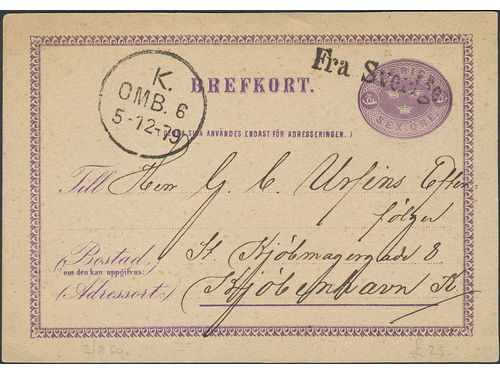 Fra Sverige
K.
OMB. 6
5-12-79
BREFKORT.
SEX ÖRE
(DENNA SIDA ANVÄNDES ENDAST FÖR ADRESSERINGEN.)
Till Herr G. C. Ursins Efter-
følger
(Bostad, St. Kjöbmagergade 8
om den kan uppgifvas:)
(Adressort:) Kjöbenhavn K